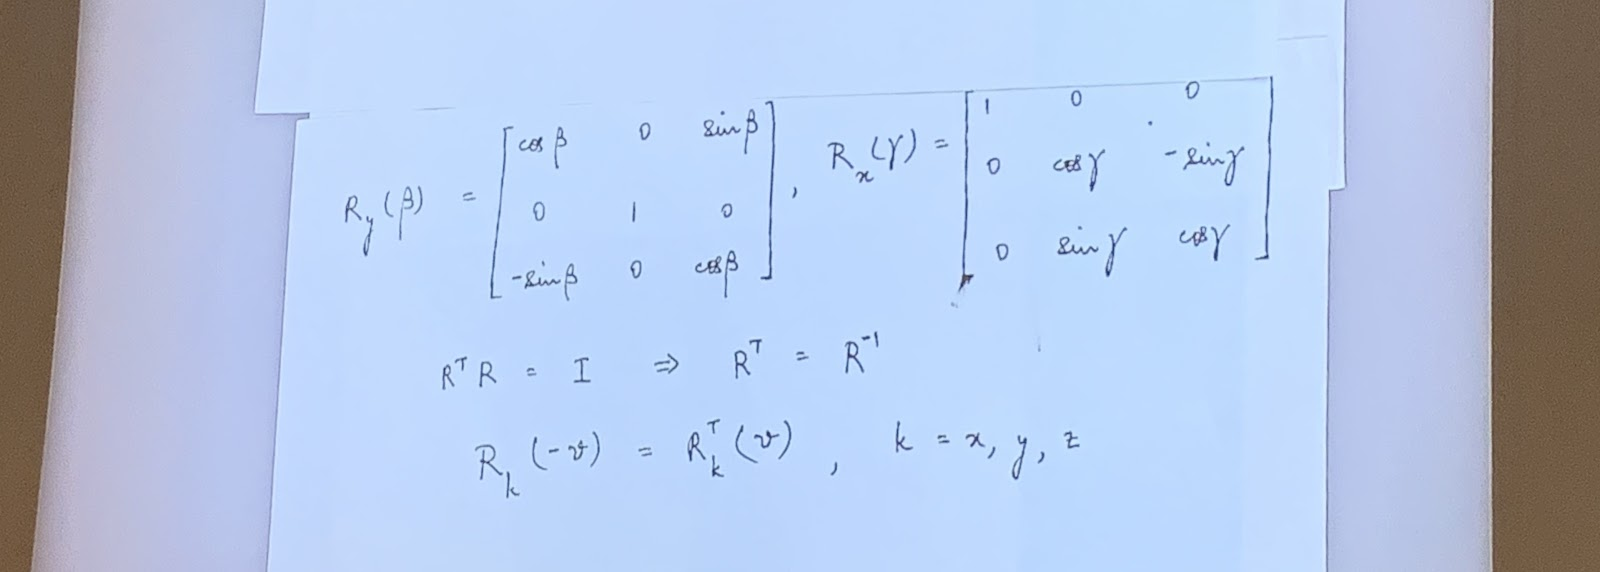 R_y(β) = [cos β 0 sin β; 0 1 0; -sin β 0 cos β], R_x(γ) = [1 0 0; 0 cos γ -sin γ; 0 sin γ cos γ]
R^T R = I ⇒ R^T = R^-1
R_k(-v) = R_k^T(v), k = x, y, z